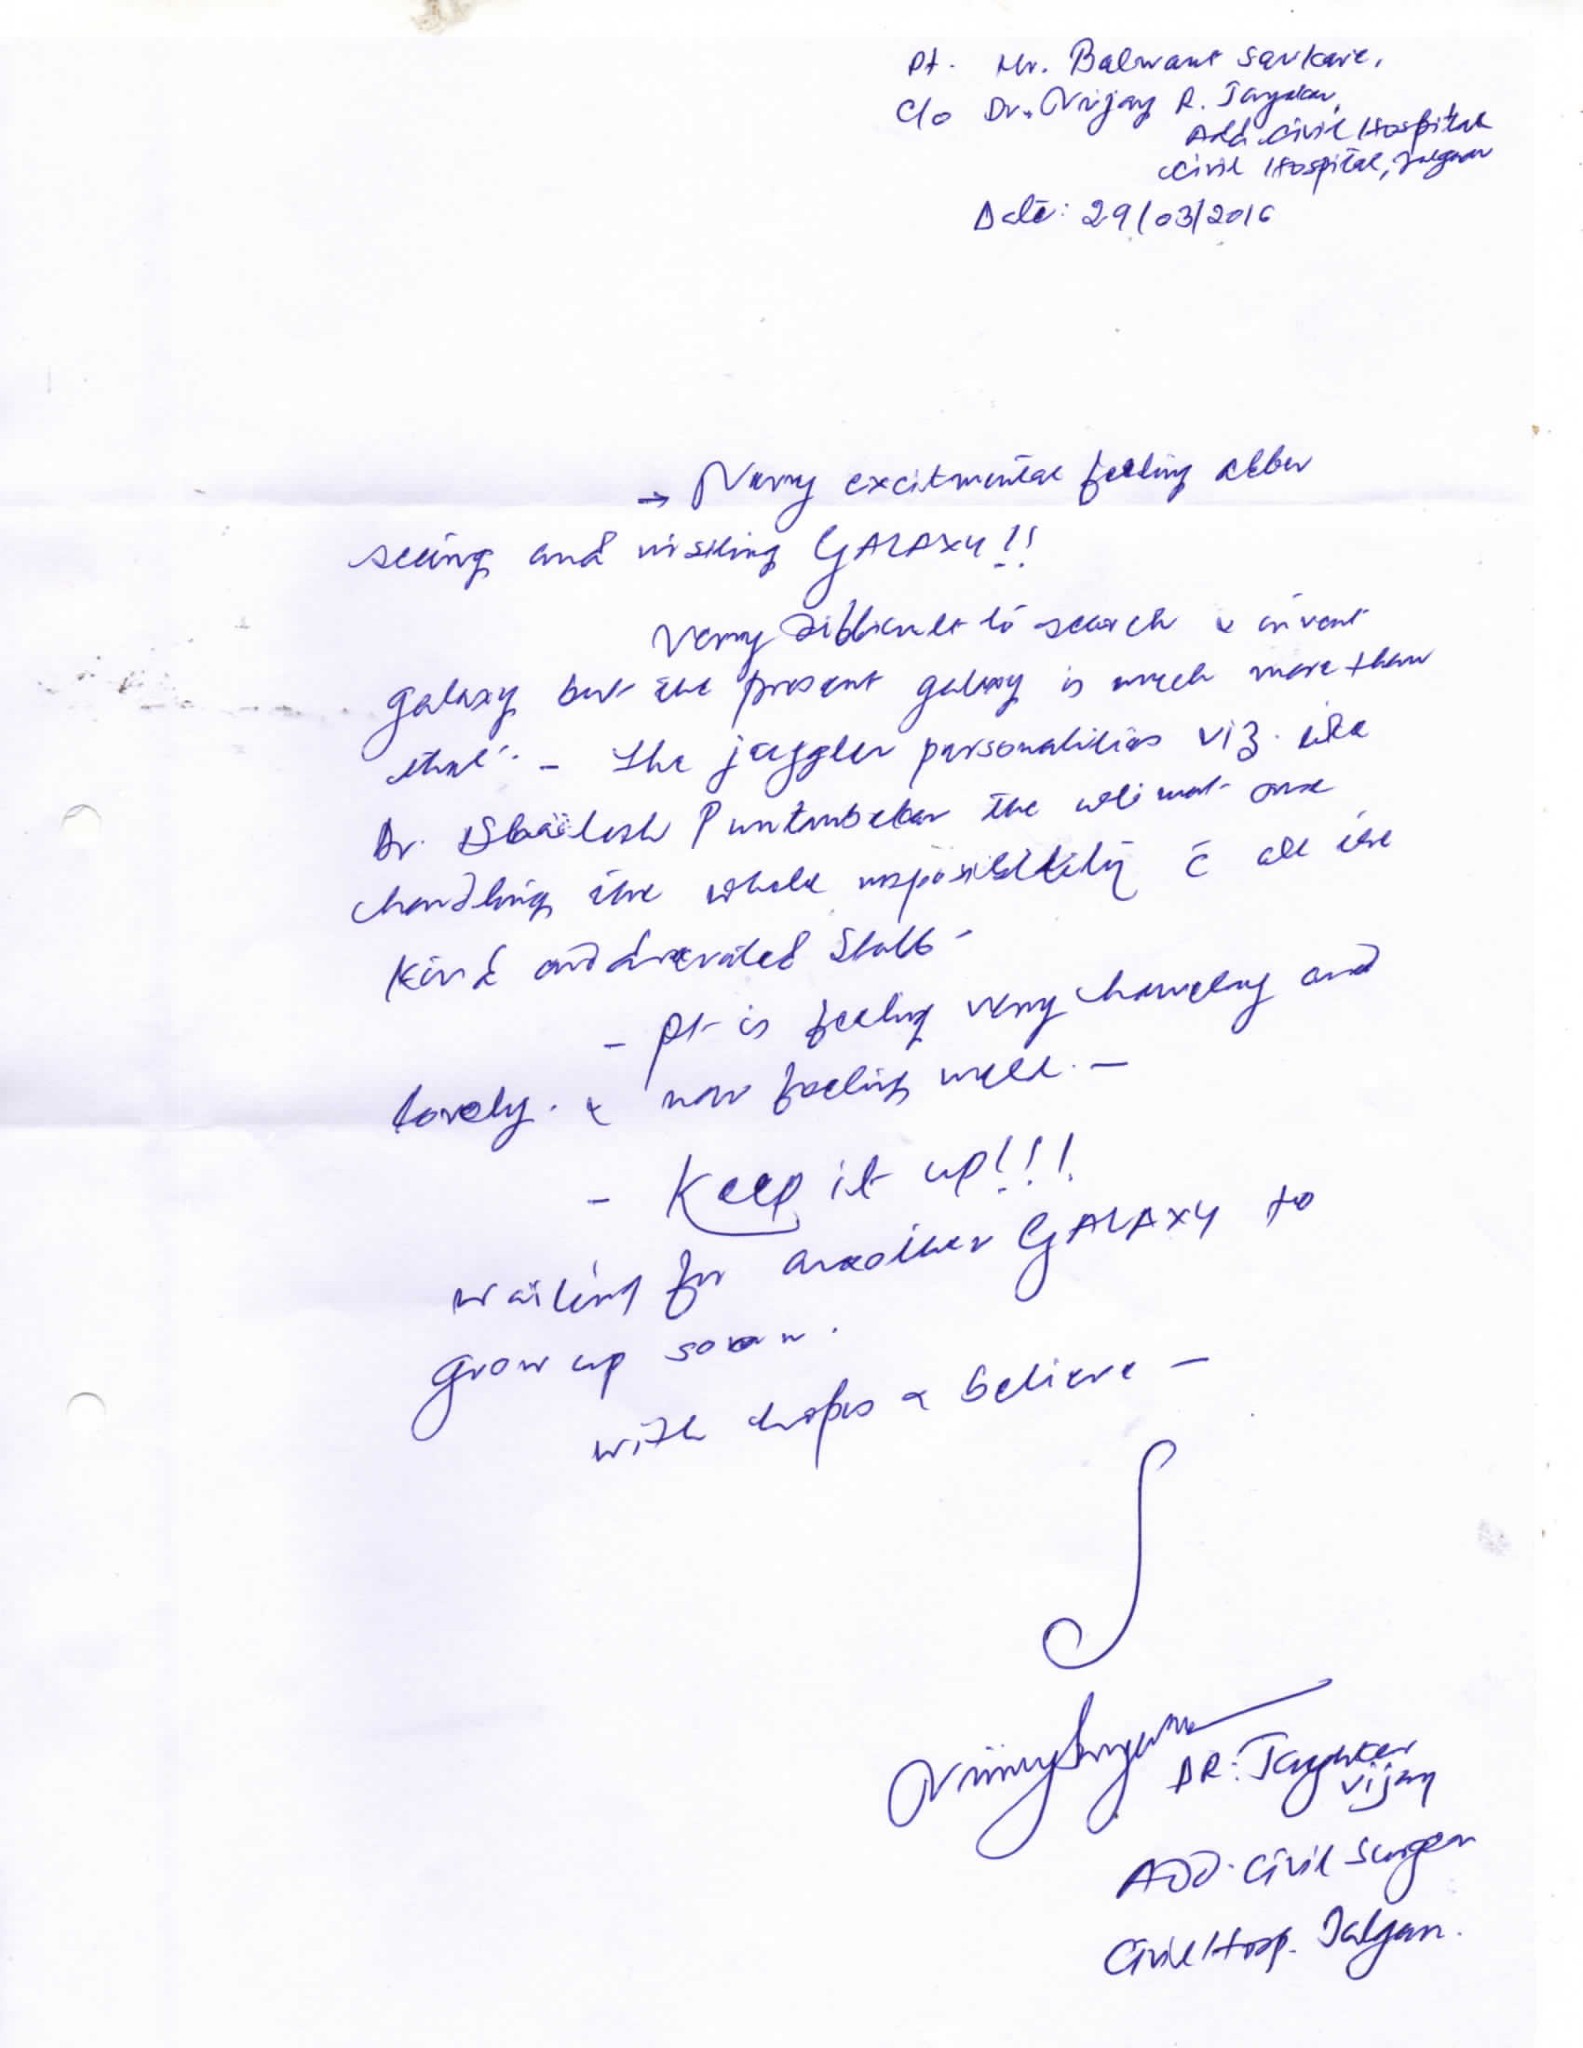 Pt. Mr. Balwant Savkare,
C/o Dr. Vijay R. Jayakar,
Add. Civil Hospital
Civil Hospital, Jalgaon
Date: 29/03/2016
→ Very excitmental feeling after
seeing and visiting GALAXY!!
Very difficult to search & invent
galaxy but the present galaxy is much more than
that. - The juggler personalities viz. like
Dr. Shailesh Puntambekar the ultimat one
handling the whole responsibility c̄ all the
kind and devoted staff-
- Pt is feeling very and
lovely. & now feeling well. -
- Keep it up!!!
waiting for another GALAXY to
grow up soon.
with hopes & believe -
DR. Jayakar
Vijay
ADD. Civil Surgeon
Civil Hosp. Jalgaon.